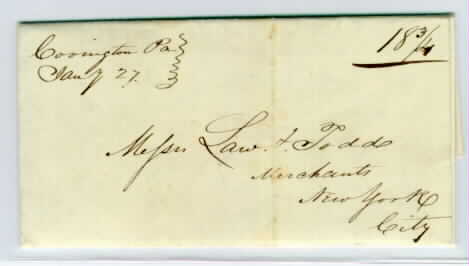 Covington Pa
Jany 27.
18 3/4
Messrs Law & Todd
Merchants
New York
City